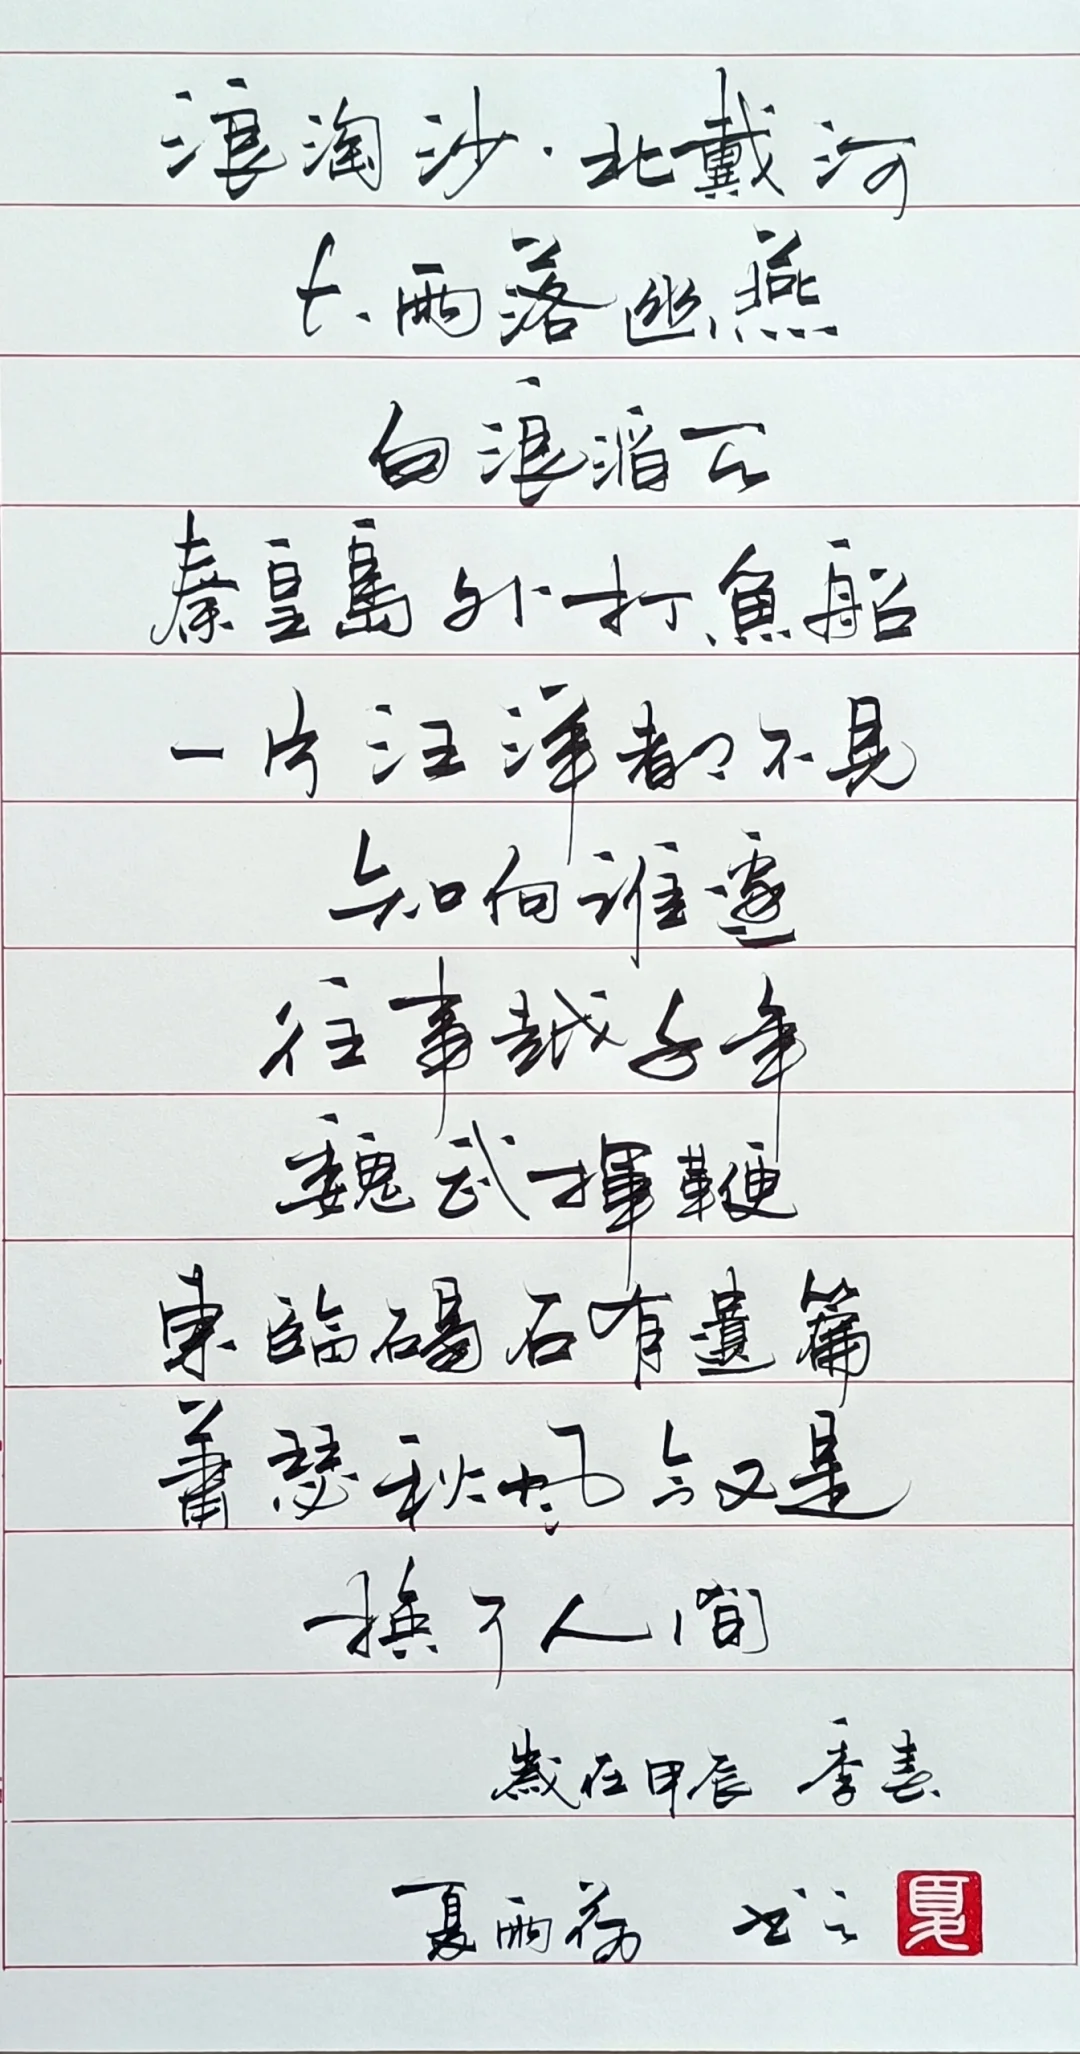 浪淘沙·北戴河
大雨落幽燕
白浪滔天
秦皇島外打魚船
一片汪洋都不見
知向誰邊
往事越千年
魏武揮鞭
東臨碣石有遺篇
蕭瑟秋風今又是
換了人間
歲在甲辰 季春
夏雨荷 书之
夏